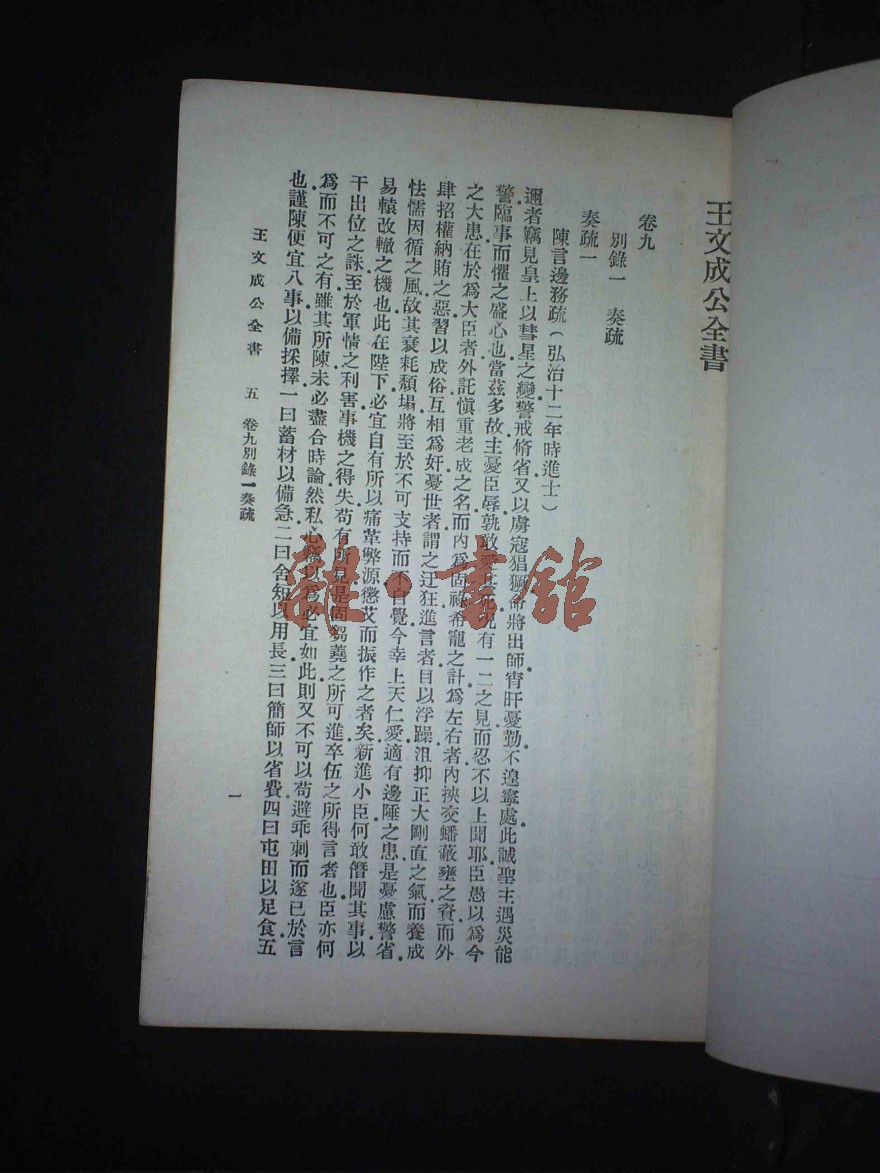 王文成公全書
卷九
別錄一 奏疏
奏疏一
陳言邊務疏(弘治十二年時進士)
邇者竊見皇上以彗星之變警戒脩省又以虜寇猖獗命將出師宵旰憂勤不遑寧處此誠聖主遇災能
警臨事而懼之盛心也當茲多故主憂臣辱孰敢愛其死況有一二之見而忍不以上聞耶臣愚以為今
之大患在於為大臣者外託愼重老成之名而內為固祿希寵之計為左右者內挾交蟠蔽壅之資而外
肆招權納賄之惡習以成俗互相為奸憂世者謂之迂狂進言者目以浮躁沮抑正大剛直之氣而養成
怯懦因循之風故其衰耗頹塌將至於不可支持而不自覺今幸上天仁愛適有邊陲之患是憂慮警省
易轅改轍之機也此在陛下必宜自有所以痛革弊源懲艾而振作之者矣新進小臣何敢僭聞其事以
干出位之誅至於軍情之利害事機之得失苟有所見是固芻蕘之所可進卒伍之所得言者也臣亦何
為而不可之有雖其所陳未必盡合時論然私心竊以為必宜如此則又不可以苟避乖刺而遂已於言
也謹陳便宜八事以備採擇一曰蓄材以備急二曰舍短以用長三曰簡師以省費四曰屯田以足食五
王文成公全書 五 卷九別錄一奏疏
一
龍·書館